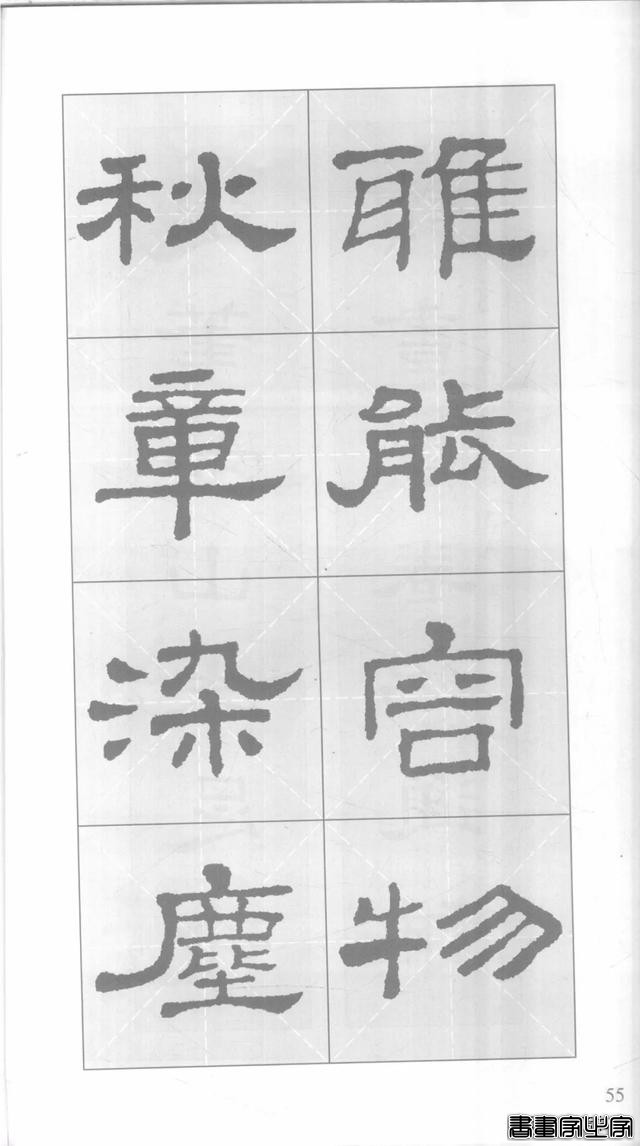 雅能容物
秋章染塵
55
書畫家必家